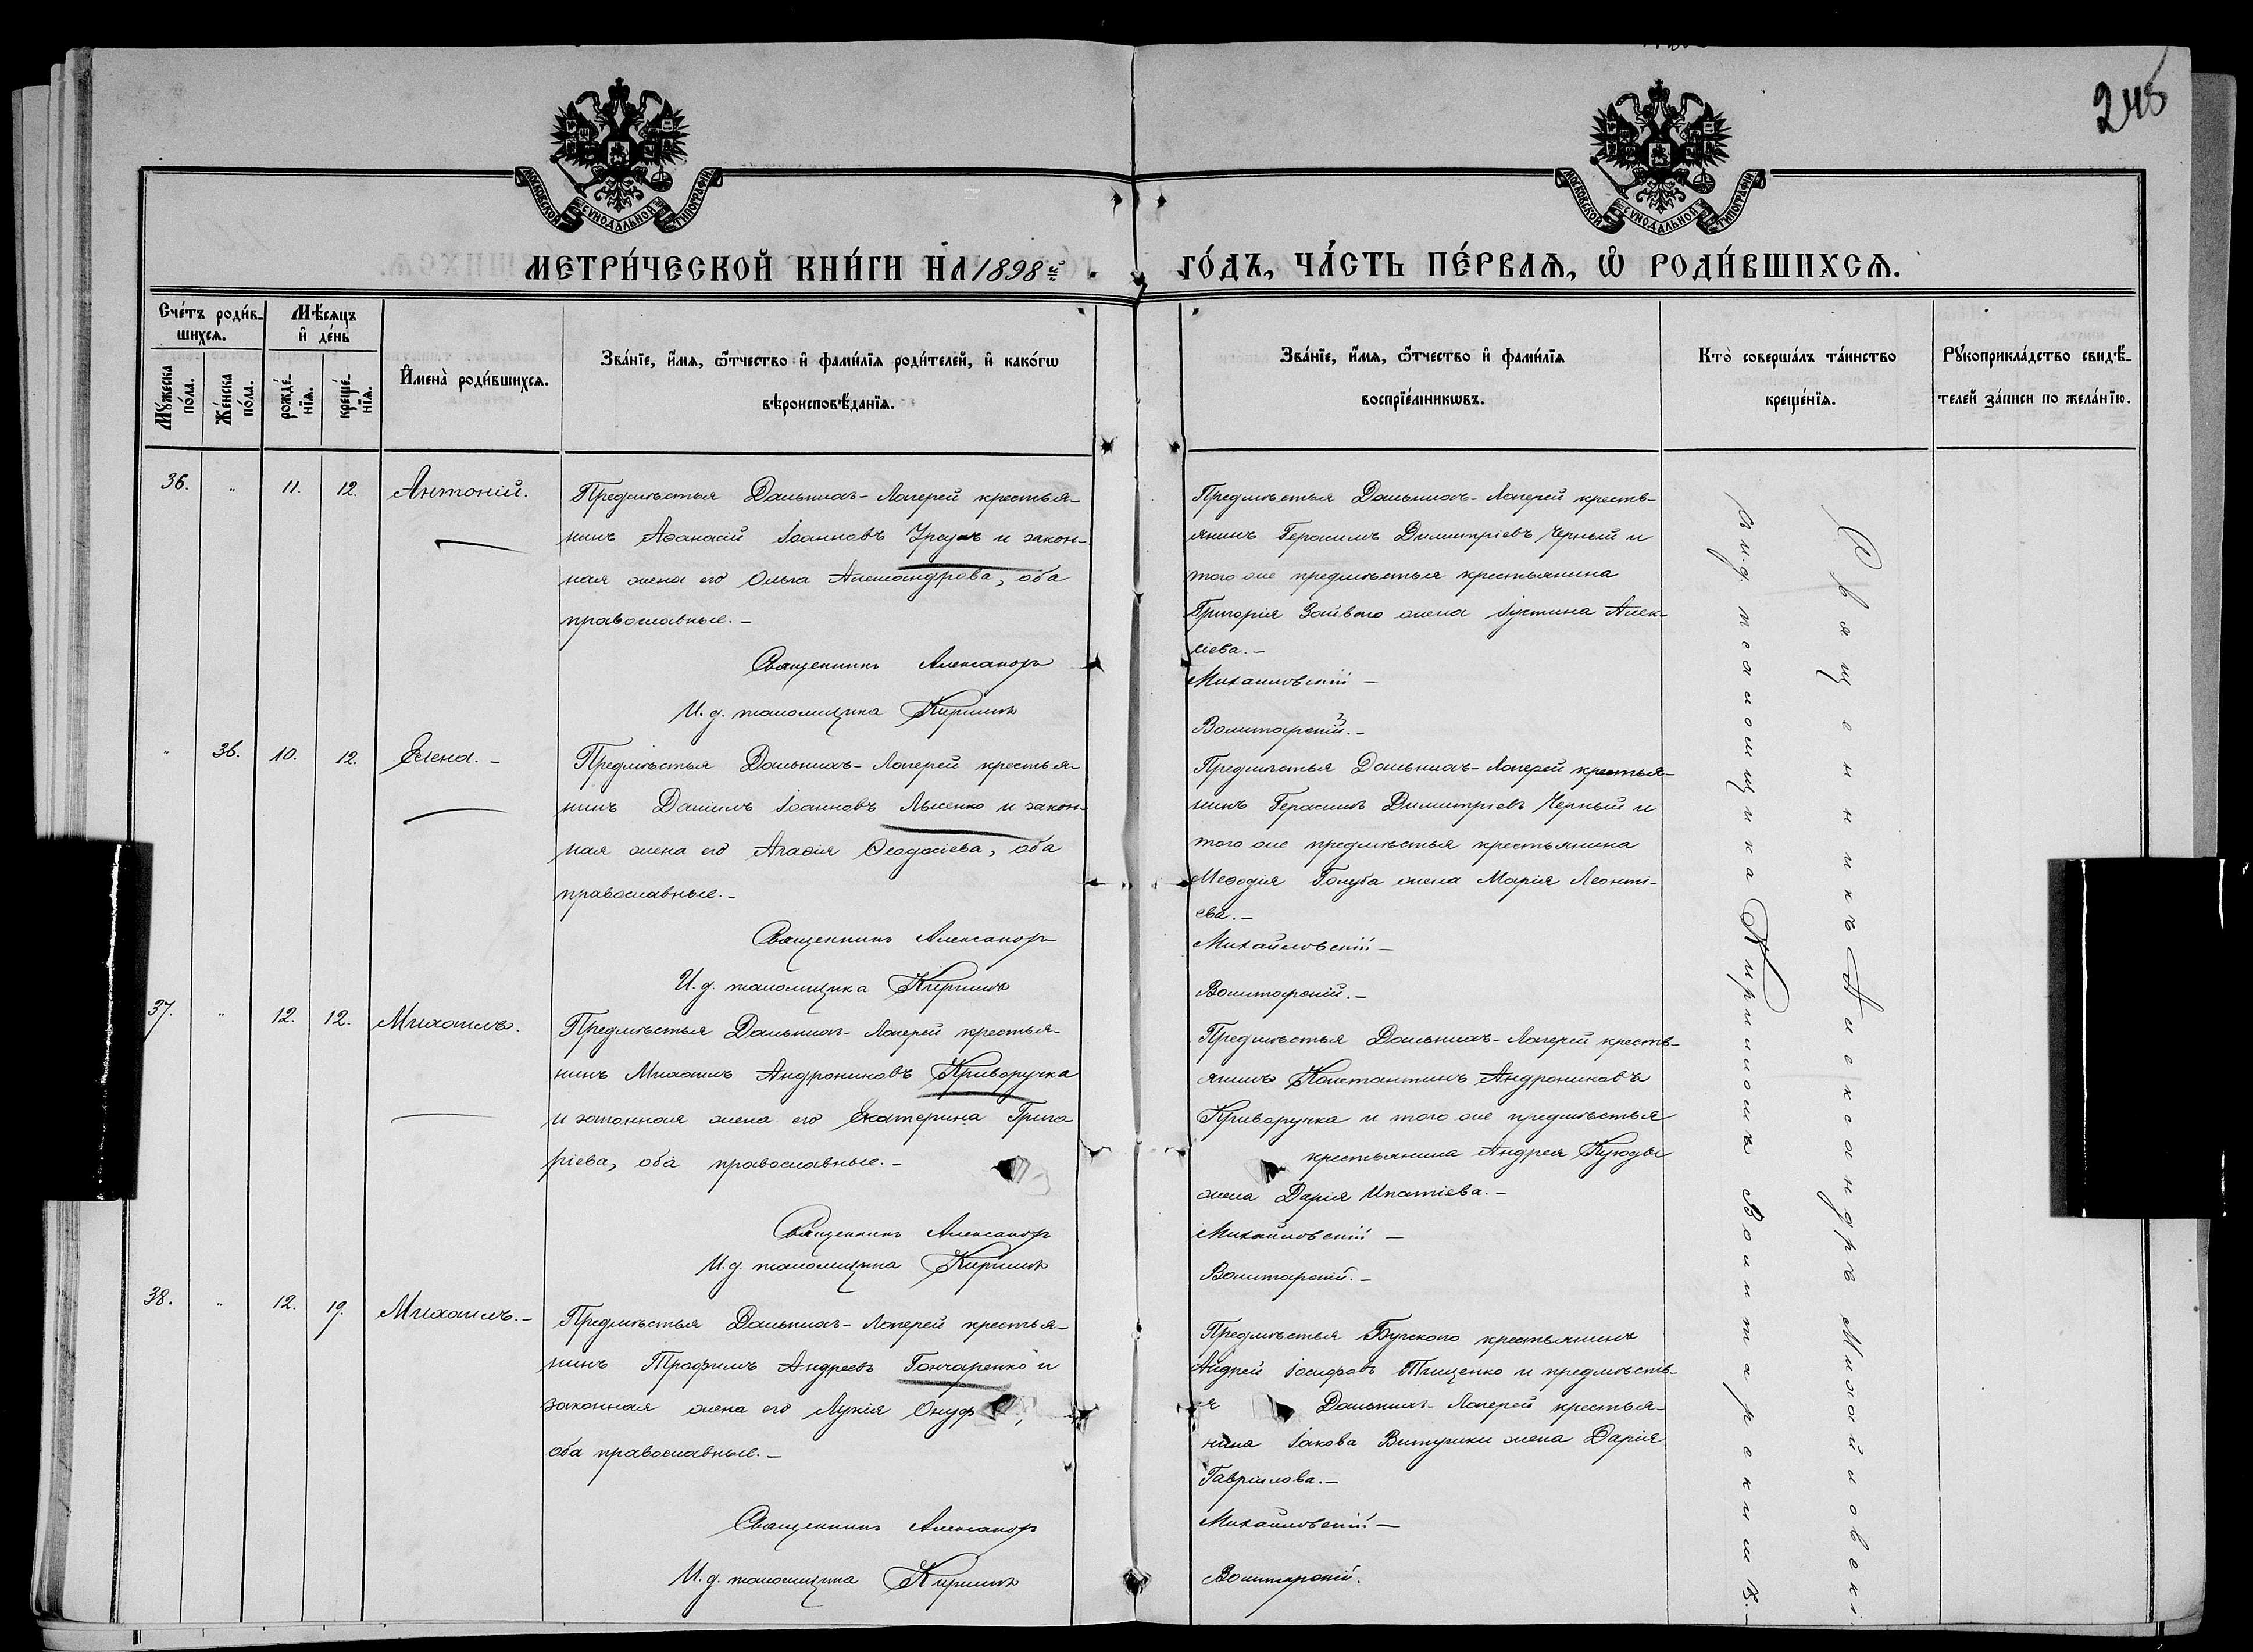 248
МОСКОВСКОЙ СѴНОДАЛЬНОЙ ТИПОГРАФІИ
МОСКОВСКОЙ СѴНОДАЛЬНОЙ ТИПОГРАФІИ
МЕТРИ́ЧЕСКОЙ КНИ́ГИ НА 1898й
ГО́ДЪ, ЧА́СТЬ ПЕ́РВАѦ, Ѡ҆ РОДИ́ВШИХСѦ.
Сче́тъ роди́в-
шихсѧ.
Мꙋ́жеска
по́ла.
Же́нска
по́ла.
Мѣ́сѧцъ
и҆ де́нь
рожде́-
нїѧ.
креще́-
нїѧ.
И҆мена̀ роди́вшихсѧ.
Зва́нїе, и҆́мѧ, ѻ҆́тчество и҆ фами́лїѧ роди́телей, и҆ како́гѡ
вѣроисповѣ́данїѧ.
Зва́нїе, и҆́мѧ, ѻ҆́тчество и҆ фами́лїѧ
воспрїе́мникѡвъ.
Кто̀ соверша́лъ та́инство
креще́нїѧ.
Рꙋкоприкла́дство свидѣ́-
телей за́писи по жела́нїю.
36. " 11. 12. Антоній.
Предмѣстья Дальнихъ-Лагерей крестья-
нинъ Аѳанасій Іоанновъ Урсулъ и закон-
ная жена его Ольга Александрова, оба
православные. –
Священникъ Александръ
И. д. псаломщика Кириллъ
Предмѣстья Дальнихъ-Лагерей кресть-
янинъ Герасимъ Димитріевъ Черный и
того же предмѣстья крестьянина
Григорія жена Іустина Алек-
сіева. –
Михайловскій –
Волитарскій. –
" 36. 10. 12. Елена. –
Предмѣстья Дальнихъ-Лагерей крестья-
нинъ Даніилъ Іоанновъ Лысенко и закон-
ная жена его Агаѳія Ѳеодосіева, оба
православные. –
Священникъ Александръ
И. д. псаломщика Кириллъ
Предмѣстья Дальнихъ-Лагерей крестья-
нинъ Герасимъ Димитріевъ Черный и
того же предмѣстья крестьянина
Меѳодія Голуба жена Марія Леонті-
ева. –
Михайловскій –
Волитарскій. –
37. " 12. 12. Михаилъ.
Предмѣстья Дальнихъ-Лагерей крестья-
нинъ Михаилъ Андрониковъ Криворучка
и законная жена его Екатерина Григо
ріева, оба православные. –
Священникъ Александръ
И. д. псаломщика Кириллъ
Предмѣстья Дальнихъ-Лагерей кресть-
янинъ Константинъ Андрониковъ
Криворучка и того же предмѣстья
крестьянина Андрея
жена Дарія Ипатіева. –
Михайловскій –
Волитарскій. –
38. " 12. 19. Михаилъ. –
Предмѣстья Дальнихъ-Лагерей крестья-
нинъ Трофимъ Андреевъ Гончаренко и
законная жена его Лукія Онуф
оба православные. –
Священникъ Александръ
И. д. псаломщика Кириллъ
Предмѣстья Бугского крестьянинъ
Андрей Іосифовъ Тищенко и предмѣсть-
я Дальнихъ-Лагерей крестья-
нина Іакова Витушки жена Дарія
Гавріилова. –
Михайловскій –
Волитарскій.
Священникъ Александръ Михайловскі
псаломщика Кирилломъ Волитарскимъ. –